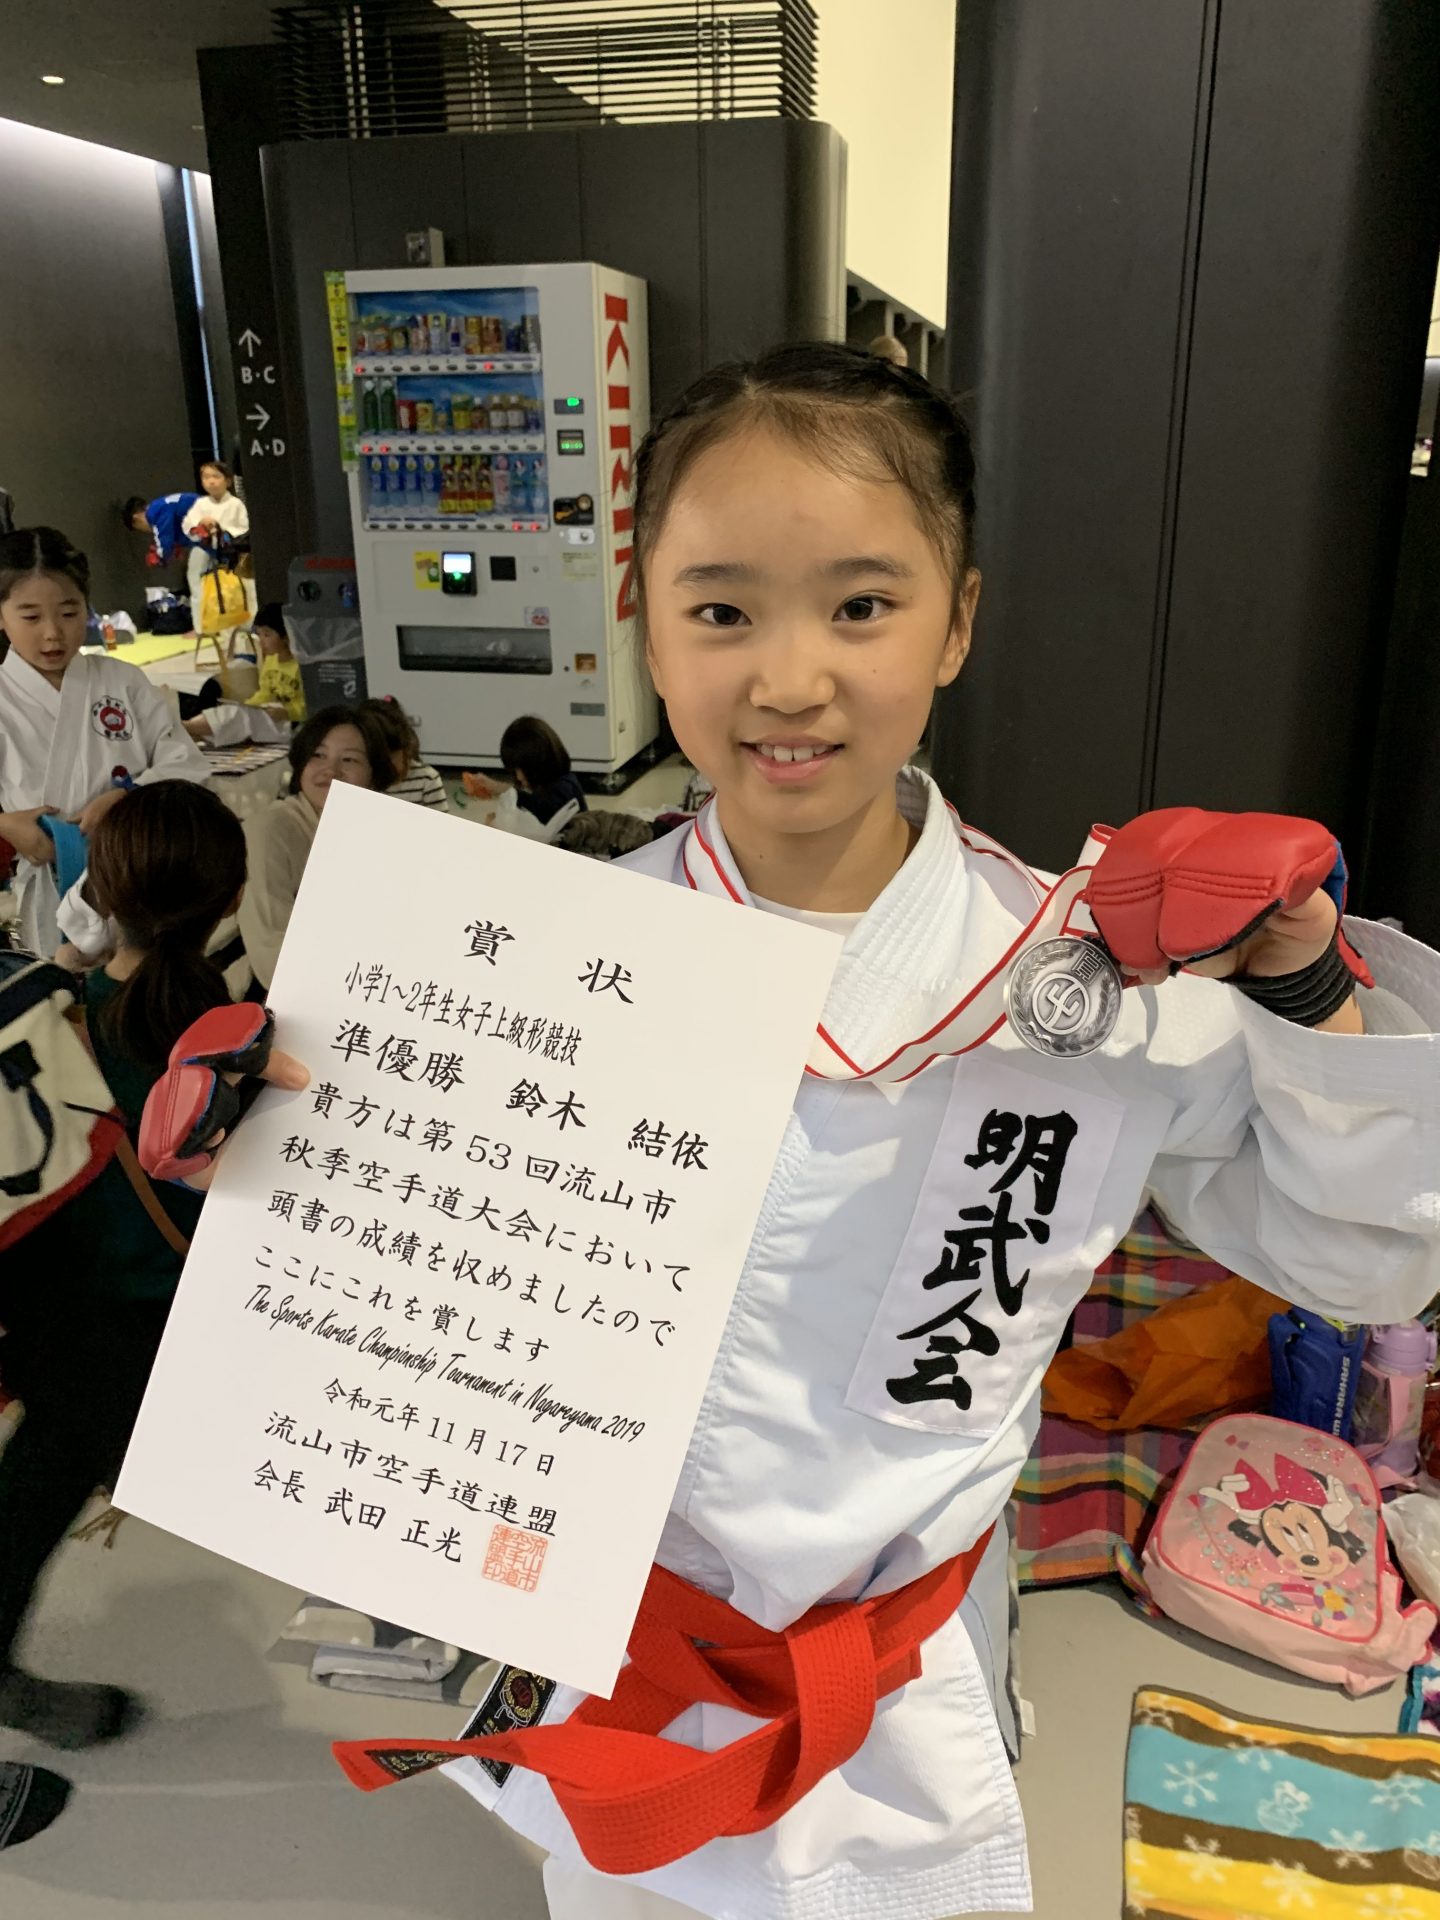 B・C
A・D
KIRIN
賞状
小学1〜2年生女子上級形競技
準優勝 鈴木 結依
貴方は第53回流山市
秋季空手道大会において
頭書の成績を収めましたので
ここにこれを賞します
The Sports Karate Championship Tournament in Nagareyama 2019
令和元年11月17日
流山市空手道連盟
会長 武田 正光
流山市
空手道
連盟印
賞
明武会